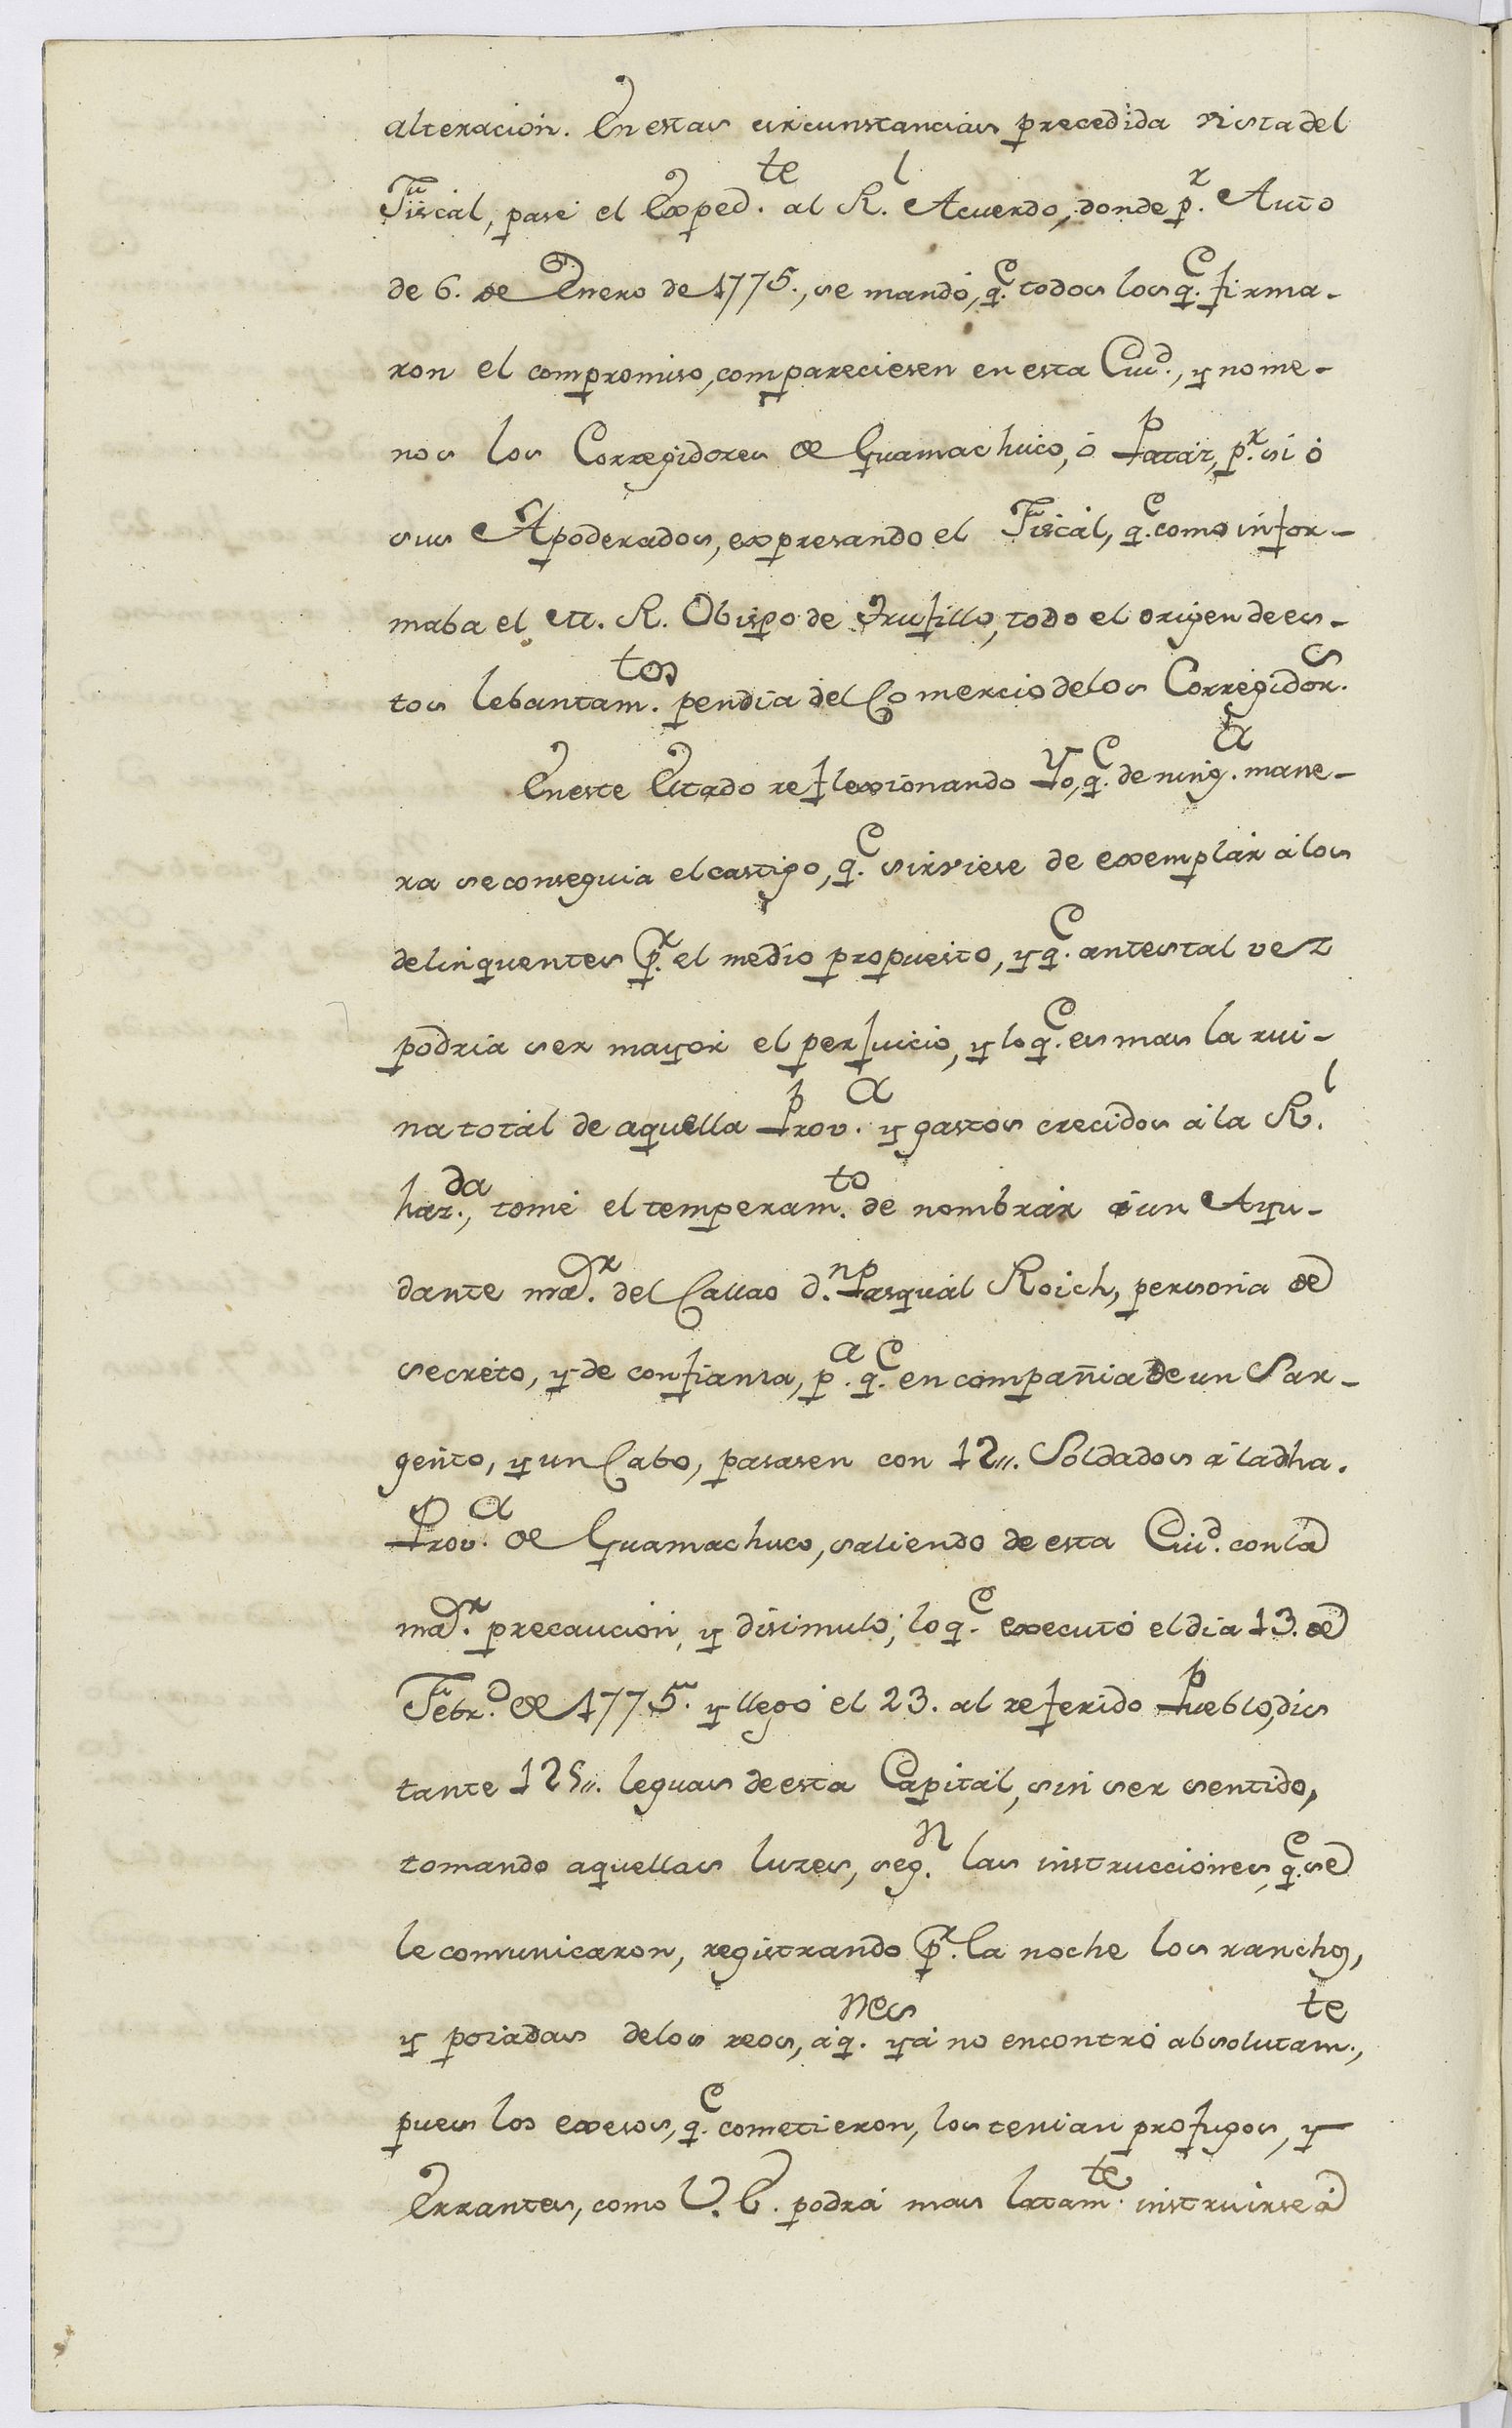 alteracion. En estas circunstancias precedida vista del
Fiscal, pasé el Exped.te al R.l Acuerdo, donde p.r Auto
de 6. de Enero de 1775., se mandó, q.e todos los q.e firma-
ron el compromiso, compareciesen en esta Ciud.d, y no me-
nos los Corregidores de Guamachuco, ó Pataz, p.r si ó
sus Apoderados, expresando el Fiscal, q.e como infor-
maba el M. R. Obispo de Trujillo, todo el origen de es-
tos lebantam.tos pendia del Comercio de los Corregidor.s
En este Estado reflexionando Yo, q.e de ning.a mane-
ra se conseguia el castigo, q.e sirviese de exemplar á los
delinquentes p.r el medio propuesto, y q.e antes tal vez
podria ser mayor el perjuicio, y lo q.e es mas la rui-
na total de aquella Prov.a y gastos crecidos á la R.l
haz.da, tomé el temperam.to de nombrar á un Ayu-
dante ma.r del Callao d.n Pasqual Roich, persona de
secreto, y de confianza, p.a q.e en compañia de un Sar-
gento, y un Cabo, pasasen con 12,,. Soldados á la dha.
Prov.a de Guamachuco, saliendo de esta Ciud.d con la
ma.r precaucion, y disimulo; lo q.e executó el dia 13. de
Febr.o de 1775. y llegó el 23. al referido Pueblo, dis
tante 125,,. leguas de esta Capital, sin ser sentido,
tomando aquellas luzes, seg.n las instrucciones, q.e se
le comunicaron, registrando p.r la noche los ranchos,
y posadas de los reos, á q.nes yá no encontró absolutam.te,
pues los exesos, q.e cometieron, los tenian profugos, y
Errantes, como V. E. podrá mas latam.te instruirse á